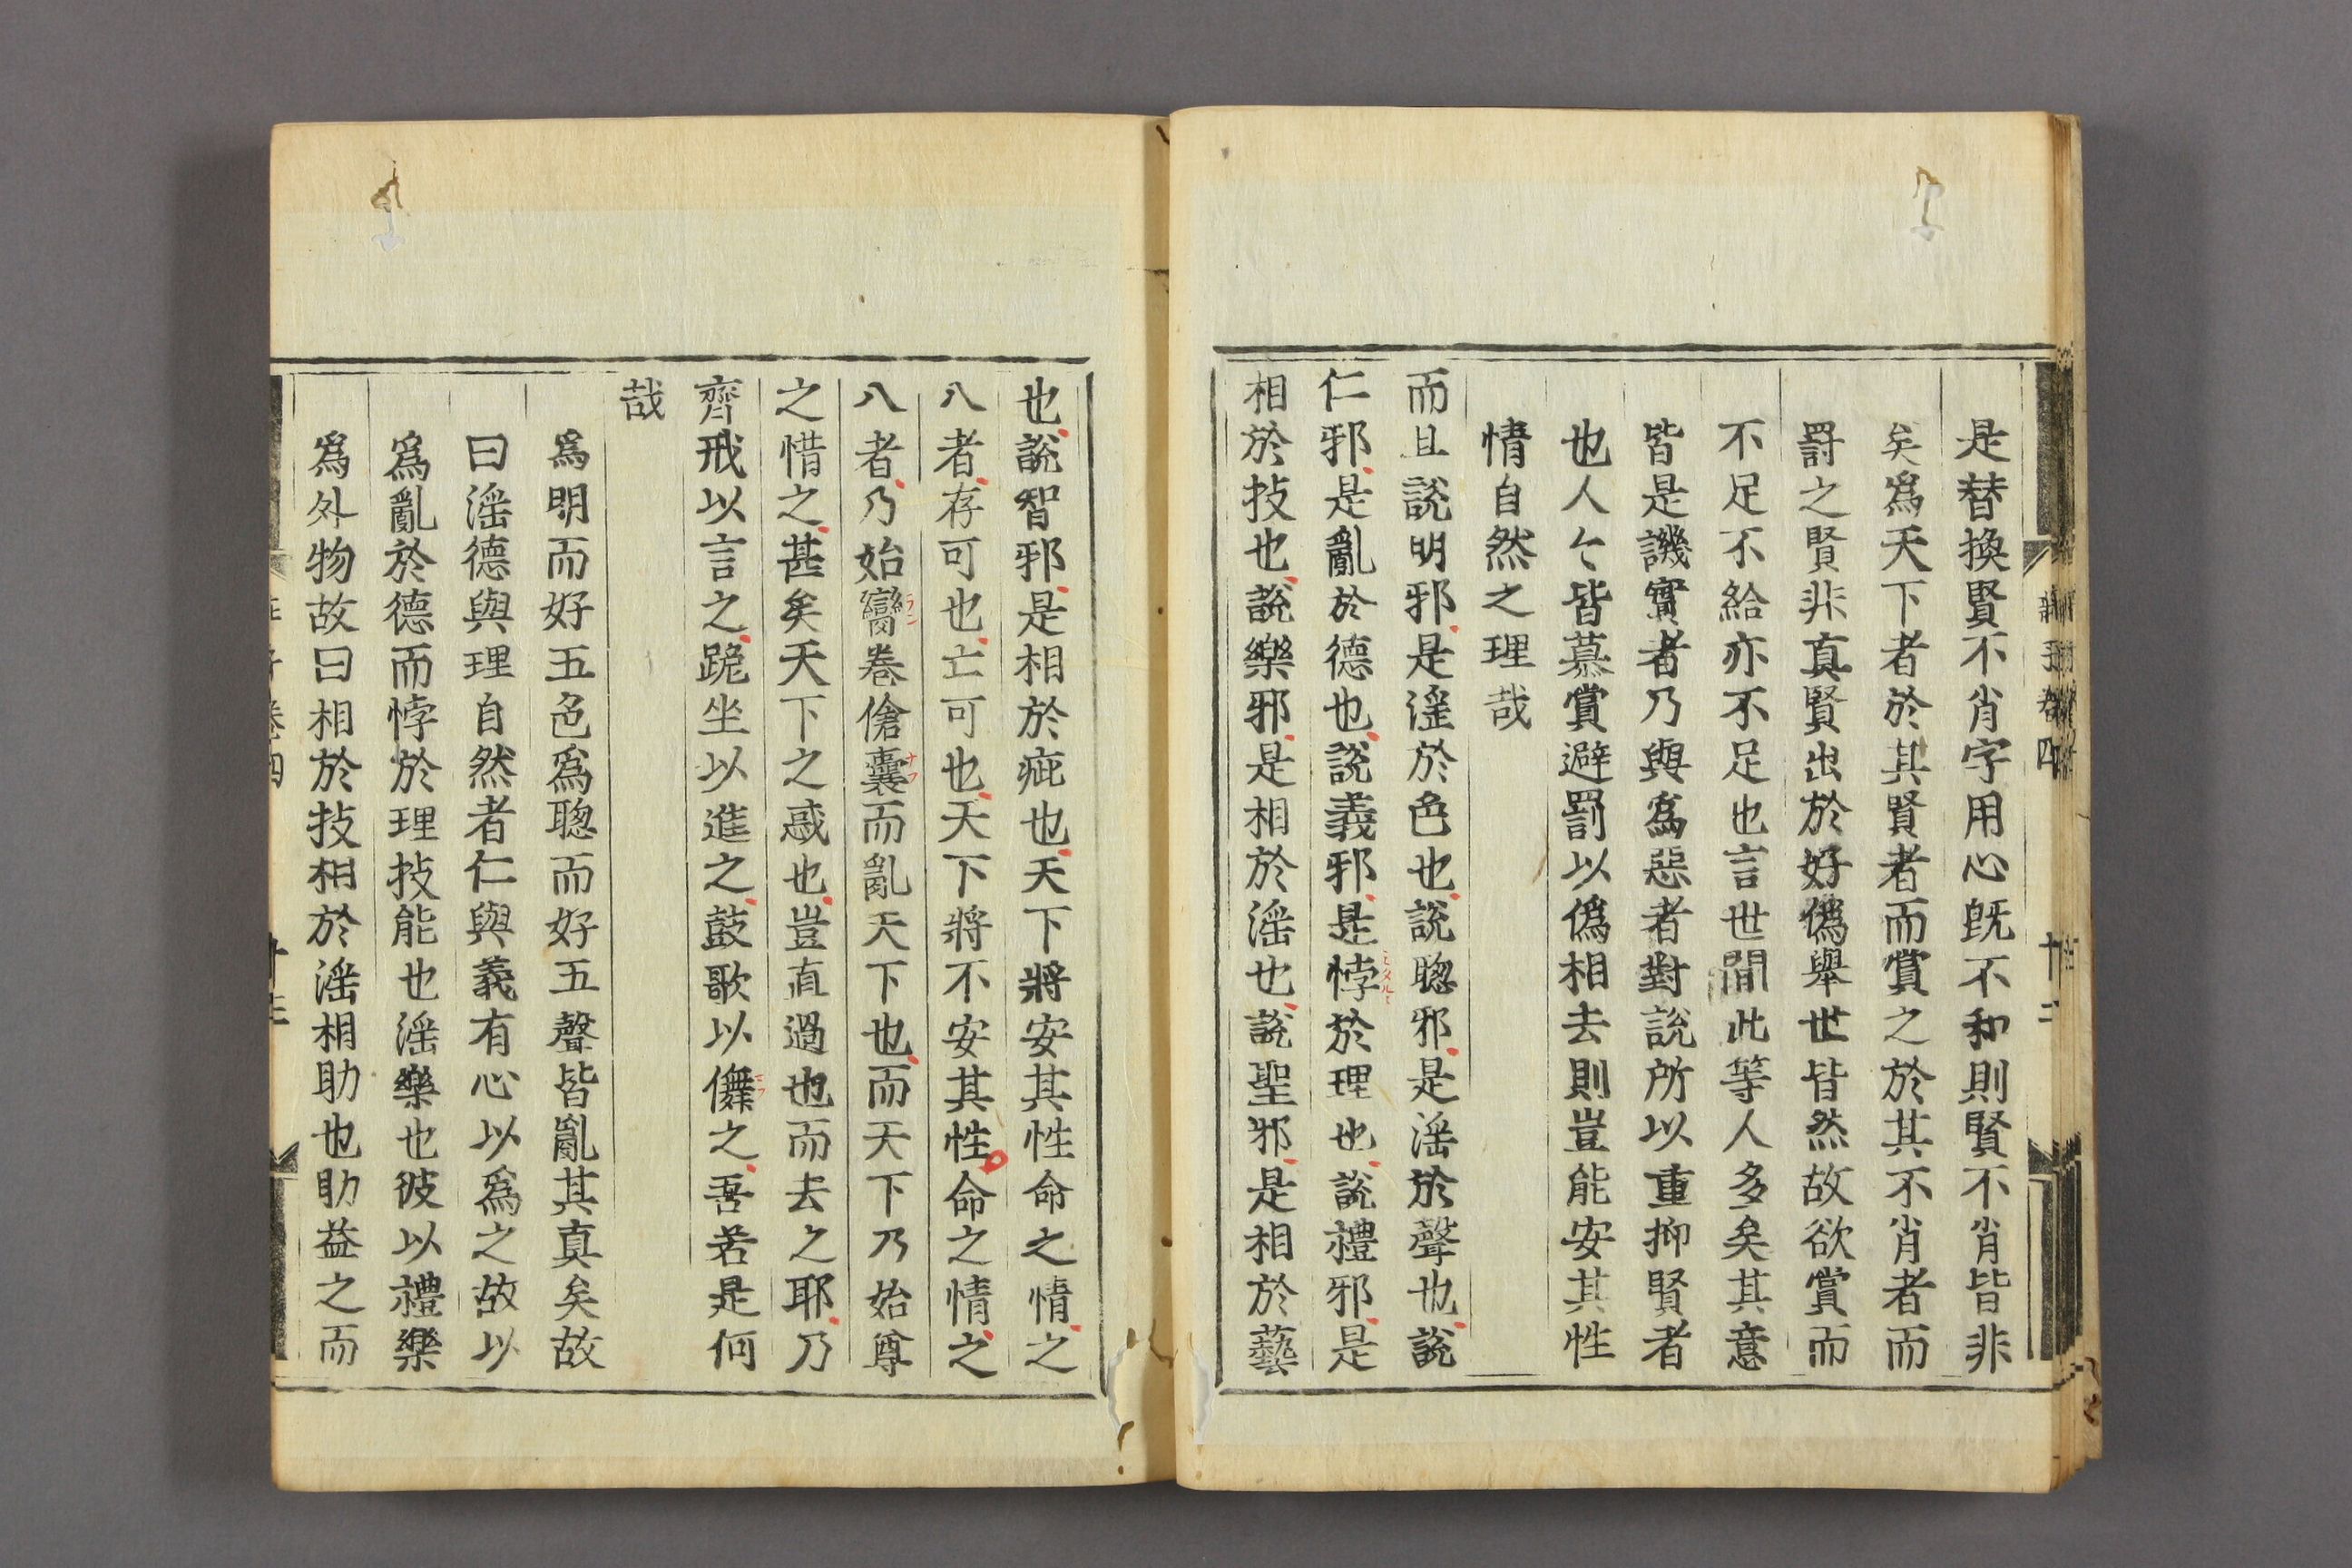 是替換賢不肖字用心旣不和則賢不肖皆非
矣爲天下者於其賢者而賞之於其不肖者而
罸之賢非真賢出於好僞舉世皆然故欲賞而
不足不給亦不足也言世間此等人多矣其意
皆是譏賞者乃與爲惡者對說所以重抑賢者
也人々皆慕賞避罰以僞相去則豈能安其性
情自然之理哉
而且說明邪是滛於色也說聦邪是滛於聲也說
仁邪是亂於德也說義邪是悖於理也說禮邪是
相於技也說樂邪是相於滛也說聖邪是相於藝
也說智邪是相於疵也天下將安其性命之情之
八者存可也亡可也天下將不安其性命之情之
八者乃始臠卷傖囊而亂天下也而天下乃始尊
之惜之甚矣天下之惑也豈直過也而去之耶乃
齊戒以言之跪坐以進之鼓歌以儛之吾若是何
哉
爲明而好五色爲聦而好五聲皆亂其真矣故
曰滛德與理自然者仁與義有心以爲之故以
爲亂於德而悖於理技能也滛樂也彼以禮樂
爲外物故曰相於技相於滛相助也助益之而